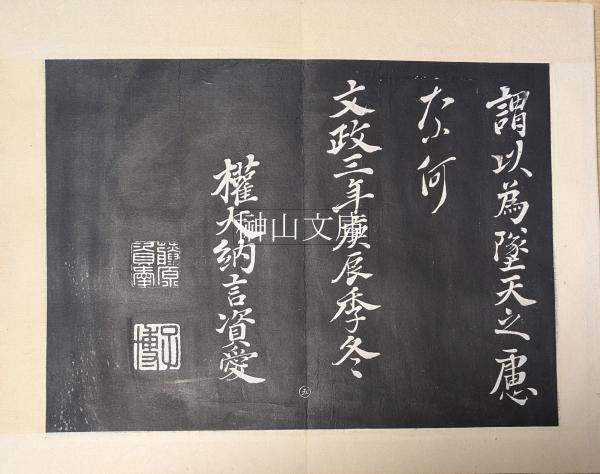 謂以為墜天之慮
奈何
文政三年庚辰季冬
權大納言資愛
藤原
資愛
榊山文庫
五